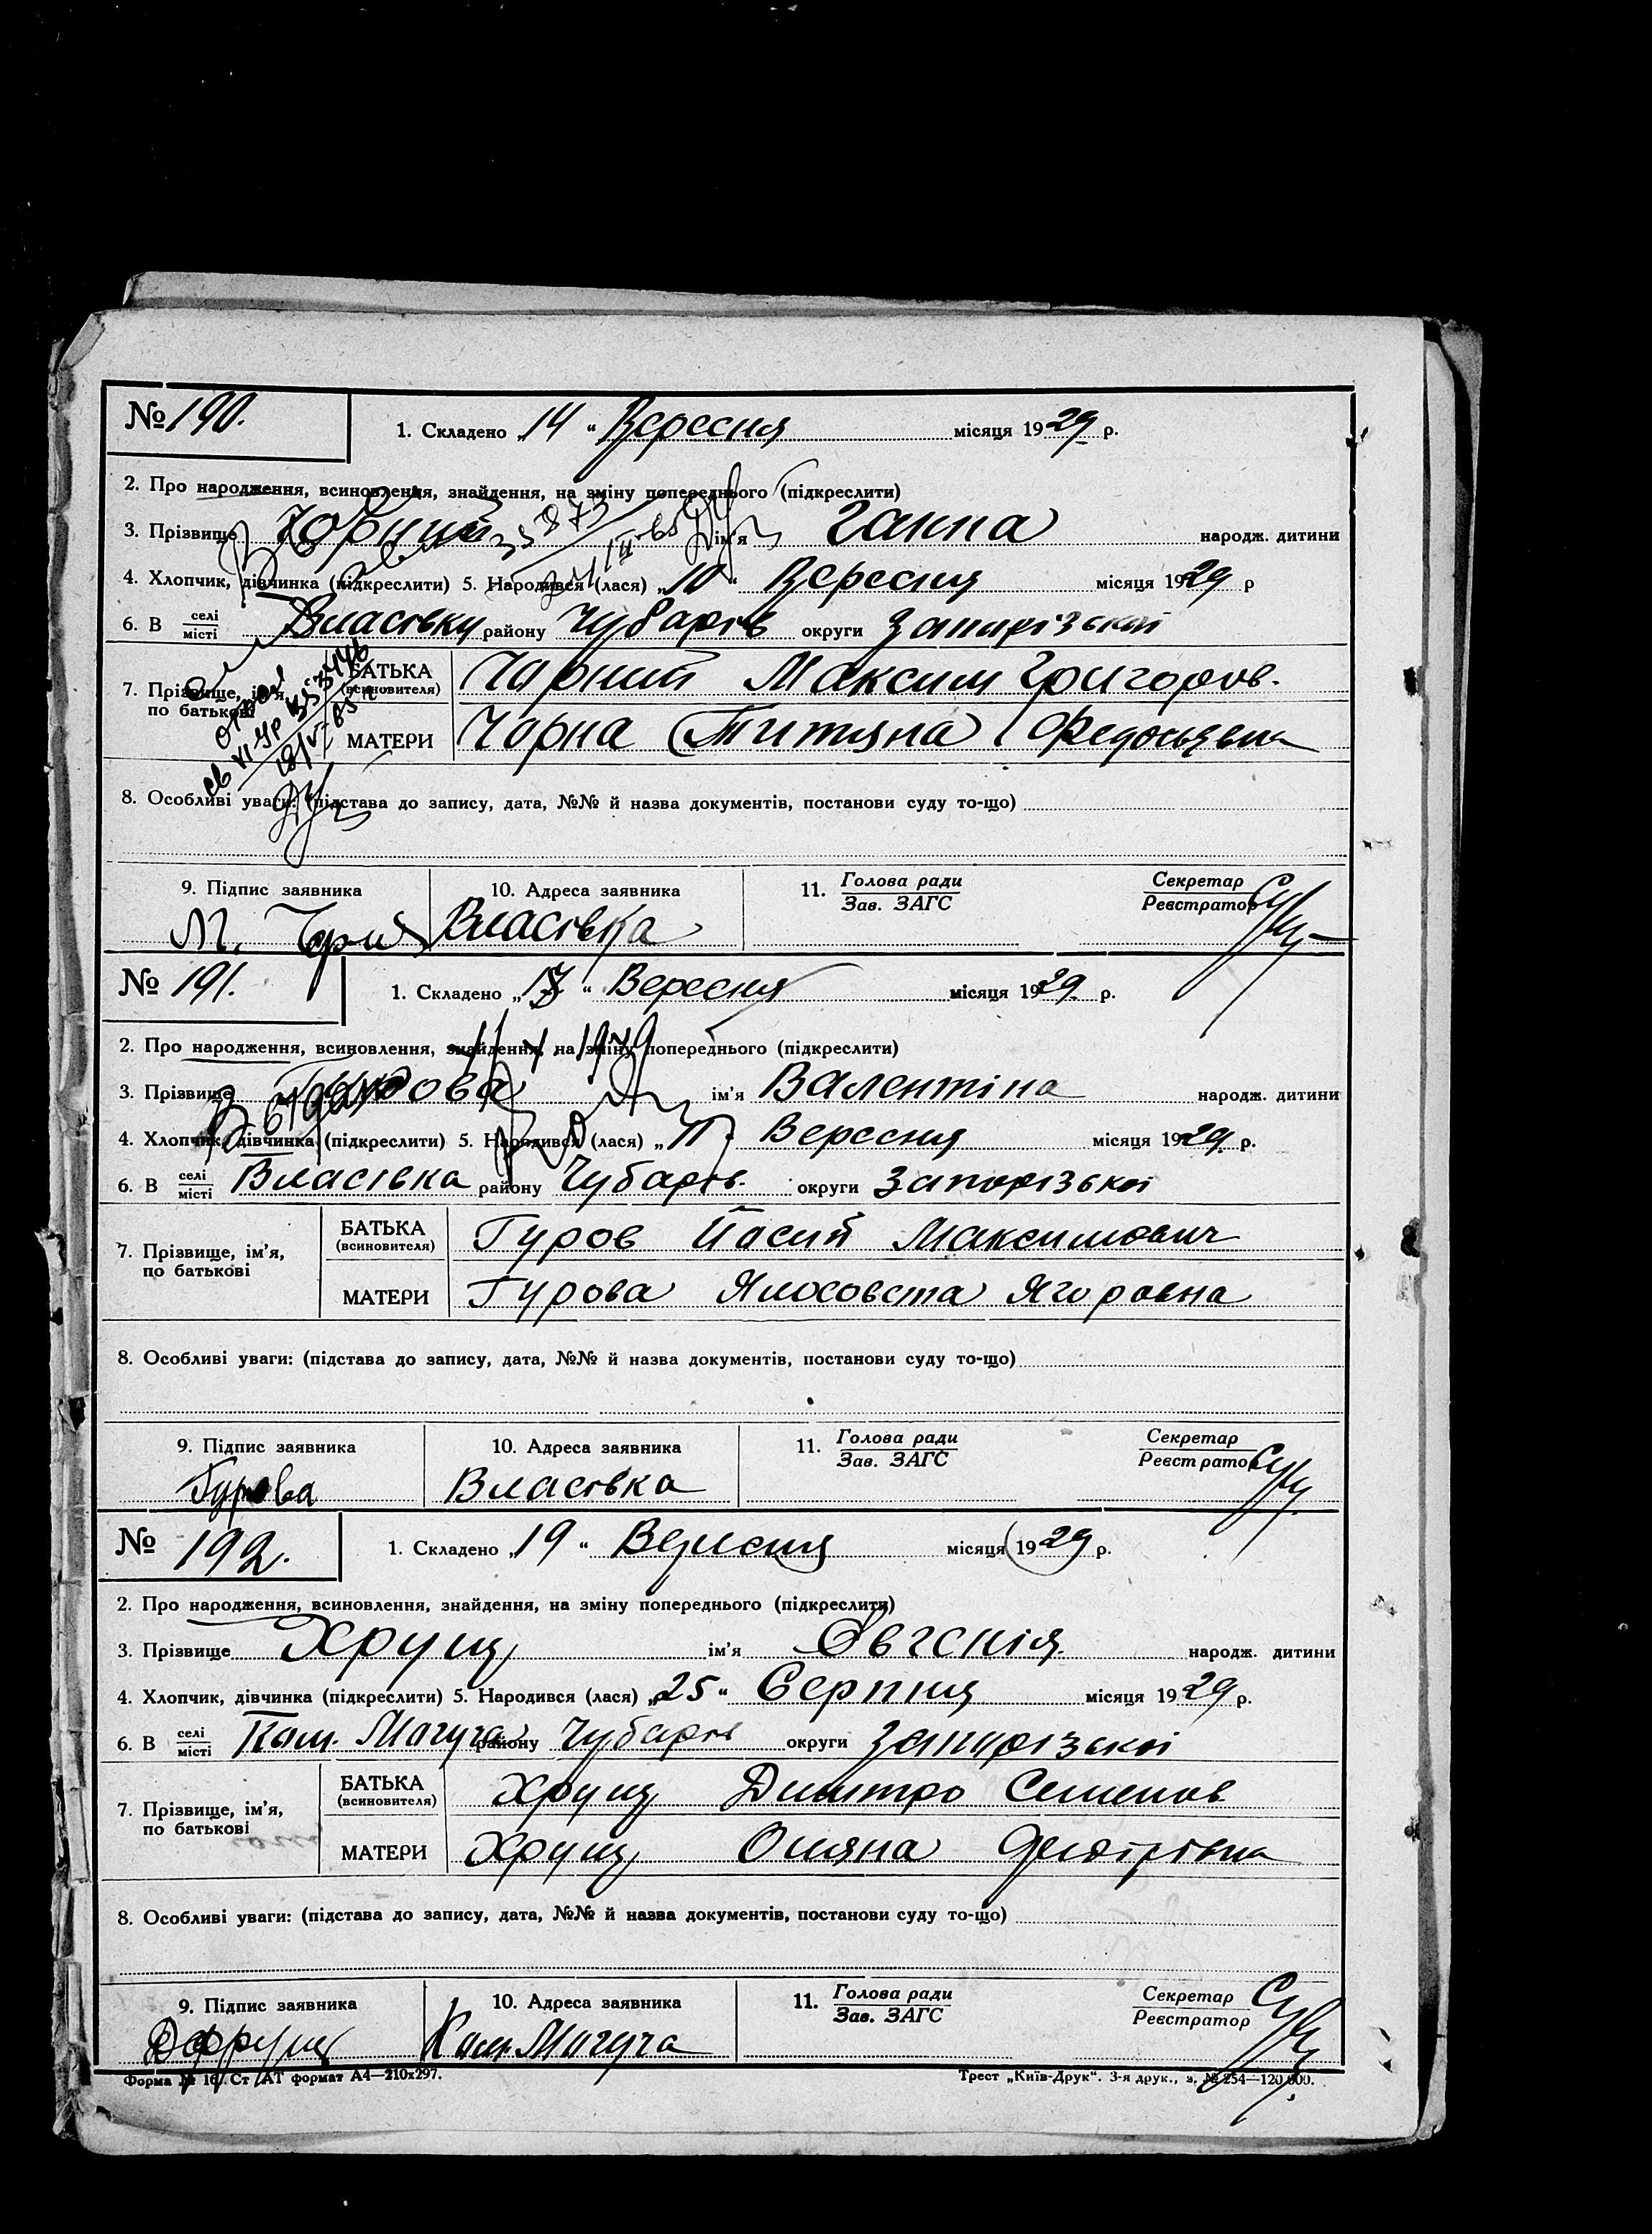 № 190. 1. Складено „14“ Вересня місяця 1929 р.
2. Про народження, всиновлення, знайдення, на зміну попереднього (підкреслити)
3. Прізвище Чорний ім'я Ганна народж. дитини
4. Хлопчик, дівчинка (підкреслити) 5. Народився (лася) „10“ Вересня місяця 1929 р
6. В селі місті Власівку району Чубарів округи Запорізької
7. Прізвище, ім'я, по батькові
БАТЬКА (всиновителя) Чорний Максим Григоров.
МАТЕРИ Чорна Титяна
8. Особливі уваги: (підстава до запису, дата, №№ й назва документів, постанови суду то-що)
9. Підпис заявника 10. Адреса заявника 11. Голова ради Зав. ЗАГС Секретар Реєстратор
М. Власівка
№ 191. 1. Складено „ “ Вересня місяця 1929. р.
2. Про народження, всиновлення, знайдення, на зміну попереднього (підкреслити)
3. Прізвище ім'я Валентіна народж. дитини
4. Хлопчик, дівчинка (підкреслити) 5. Народився (лася) „11 Вересня місяця 1929 р.
6. В селі місті Власівка району Чубарів. округи Запорізької
7. Прізвище, ім'я, по батькові
БАТЬКА (всиновителя) Гуров Максимович
МАТЕРИ Гурова Ягоровна
8. Особливі уваги: (підстава до запису, дата, №№ й назва документів, постанови суду то-що)
9. Підпис заявника 10. Адреса заявника 11. Голова ради Зав. ЗАГС Секретар Реєстратор
Гурова Власівка
№ 192. 1. Складено „19“ Вересня місяця 1929 р.
2. Про народження, всиновлення, знайдення, на зміну попереднього (підкреслити)
3. Прізвище Хрущ ім'я Євгенія народж. дитини
4. Хлопчик, дівчинка (підкреслити) 5. Народився (лася) „25“ Серпня місяця 1929 р.
6. В селі місті Кам. Могуча району Чубарів округи Запорізької
7. Прізвище, ім'я, по батькові
БАТЬКА (всиновителя) Хрущ Дмитро Семенов
МАТЕРИ Хрущ
8. Особливі уваги: (підстава до запису, дата, №№ й назва документів, постанови суду то-що)
9. Підпис заявника 10. Адреса заявника 11. Голова ради Зав. ЗАГС Секретар Реєстратор
Кам. Могуча
Форма № 16. Ст АТ формат А4—210х297. Трест „Київ-Друк“. 3-я друк., з. № 254—120.000.